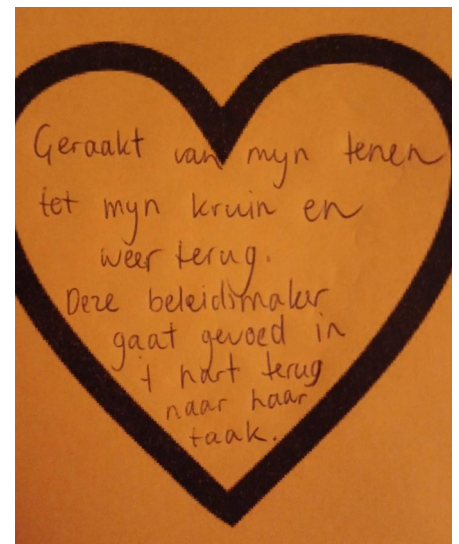 Geraakt van mijn tenen
tot mijn kruin en
weer terug.
Deze beleidsmaker
gaat gevoed in
't hart terug
naar haar
taak.